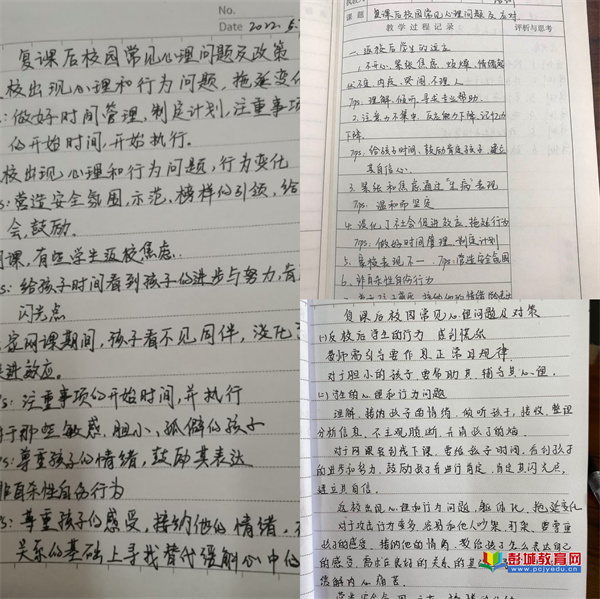 No.
Date 2022.5.
复课后校园常见心理问题及政策
校出现心理和行为问题,拖延变化
:做好时间管理,制定计划,注重事项
的开始时间,开始执行。
校出现心理和行为问题,行为变化
s:营造安全氛围,示范,榜样的引领,给
会,鼓励。
课,有些学生返校焦虑.
s:给孩子时间看到孩子的进步与努力,肯
闪光点
居家网课期间,孩子看不见同伴,淡化
进效应。
s:注重事项的开始时间,并执行
于那些敏感,胆小,孤僻的孩子
s:尊重孩子的情绪,鼓励其表达
非自杀性自伤行为
s:尊重孩子的感受,接纳他的情绪,
关系的基础上寻找替代缓解心中的
课题 复课后校园常见心理问题及应对
教学过程记录 评析与思考
一、返校后学生的适应
1.不开心、紧张焦虑、烦燥、情绪
内疚、哭闹不理人
Tips:理解、倾听、寻求专业帮助.
2.注意力不集中、反应能力下降、记忆力
下降.
Tips:给孩子时间、鼓励肯定孩子,建立
其自信心.
3.紧张和焦虑通过“生病”表现
Tips:温和而坚定
4.淡化了社会促进效应、拖延行为
Tips:做好时间管理、制定计划
5.复校表现不一 Tips:营造安全氛围
6.非自杀性自伤行为
复课后校园常见心理问题及对策
(1)返校后学生的行为 感到慌乐
老师需引导要作息正常且规律.
对于胆小的孩子要帮助其,辅导其心理.
(2)学生的心理和行为问题
理解,接纳孩子的情绪,倾听孩子,接收,整理
分析信息,不主观臆断,弄清孩子的烦
对于网课名到线下课,要给孩子时间,看到孩子
的进步和努力,鼓励孩子并进行肯定,肯定其闪光点,
建立其自信.
返校出现心理和行为问题,躯体化,拖延变化
对于攻击行为变多,容易和他人吵架,打架,要尊重
孩子的感受,接纳他的情绪,教给孩子怎么表达自己
的感受,需在良好的关系的基础
缓解内心痛苦.
彭城教育网
www.pcjyedu.cn